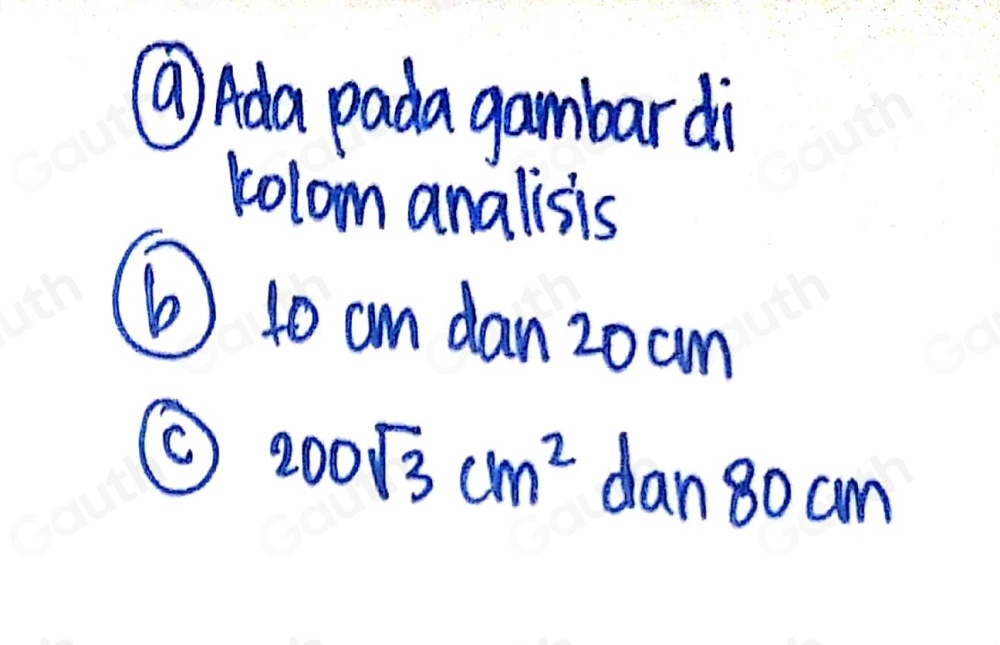 ⓐ Ada pada gambar di
kolom analisis
ⓑ 10 cm dan 20 cm
ⓒ 200√3 cm² dan 80 cm